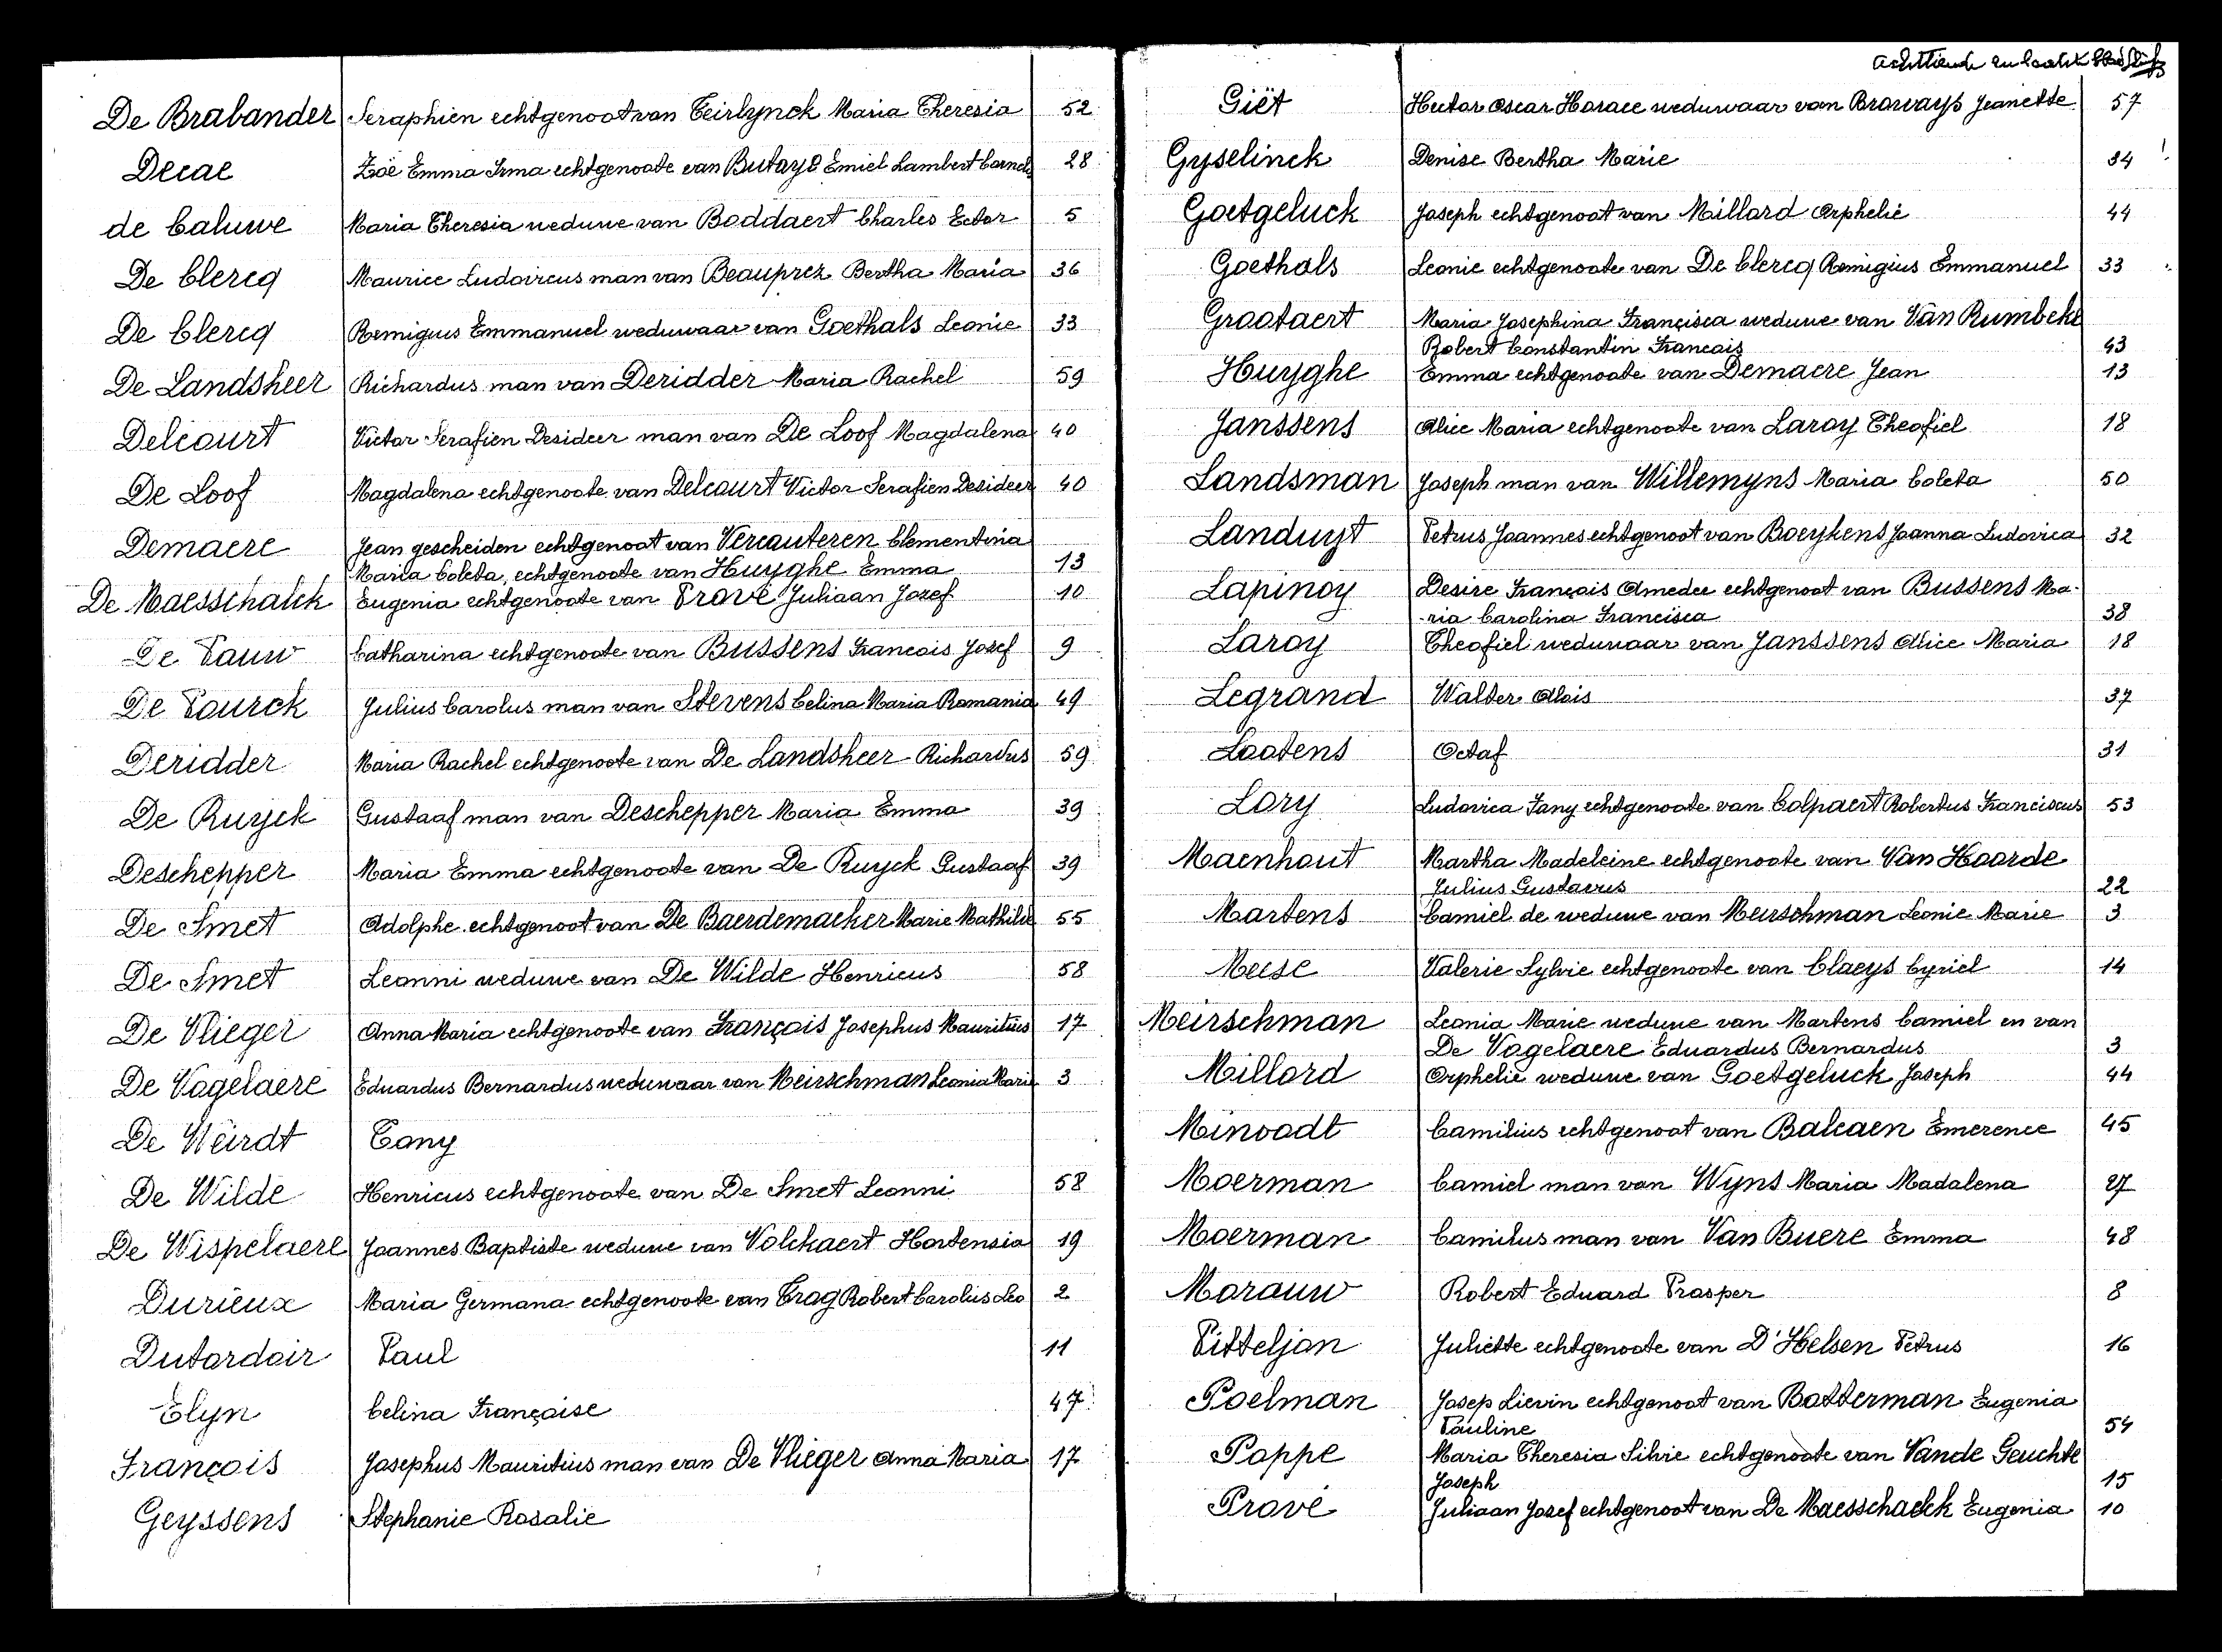 De Brabander Seraphien echtgenoot van Teirlynck Maria Theresia 52
Decae Zoë Emma Irma echtgenoote van Butaye Emiel Lambert Cornels 28
de Caluwe Maria Theresia weduwe van Boddaert Charles Ector 5
De Clercq Maurice Ludovicus man van Beauprez Bertha Maria 36
De Clercq Remigius Emmanuel weduwaar van Goethals Leonie 33
De Landsheer Richardus man van Deridder Maria Rachel 59
Delcourt Victor Serafien Desideer man van De Loof Magdalena 40
De Loof Magdalena echtgenoote van Delcourt Victor Serafien Desideer 40
Demaere Jean gescheiden echtgenoot van Vercauteren Clementina
Maria Coleta, echtgenoote van Huyghe Emma 13
De Maesschalck Eugenia echtgenoote van Prové Juliaan Jozef 10
De Pauw Catharina echtgenoote van Bussens Francois Josef 9
De Pourck Julius Carolus man van Stevens Celina Maria Romania 49
Deridder Maria Rachel echtgenoote van De Landsheer Richardus 59
De Ruyck Gustaaf man van Deschepper Maria Emma 39
Deschepper Maria Emma echtgenoote van De Ruyck Gustaaf 39
De Smet Adolphe echtgenoot van De Baerdemaeker Marie Mathilde 55
De Smet Leonni weduwe van De Wilde Henricus 58
De Vlieger Anna Maria echtgenoote van François Josephus Mauritius 17
De Vogelaere Eduardus Bernardus weduwaar van Meirschman Leonia Marie 3
De Weirdt Tony
De Wilde Henricus echtgenoote van De Smet Leonni 58
De Wispelaere Joannes Baptiste weduwe van Volckaert Hortensia 19
Durieux Maria Germana echtgenoote van Trog Robert Carolus Leo 2
Dutordoir Paul 11
Elyn Celina Françoise 47
François Josephus Mauritius man van De Vlieger Anna Maria 17
Geyssens Stephanie Rosalie
Achttiende en laatste
Giët Hector Oscar Horace weduwaar van Broways Jeanette 57
Gyselinck Denise Bertha Marie 34
Goetgeluck Joseph echtgenoot van Millord Orphelie 44
Goethals Leonie echtgenoote van De Clercq Remigius Emmanuel 33
Grootaert Maria Josephina Françisca weduwe van Van Rumbeke
Robert Constantin Francois 43
Huyghe Emma echtgenoote van Demaere Jean 13
Janssens Alice Maria echtgenoote van Laroy Theofiel 18
Landsman Joseph man van Willemyns Maria Coleta 50
Landuyt Petrus Joannes echtgenoot van Boeykens Joanna Ludovica 32
Lapinoy Desire François Amedee echtgenoot van Bussens Ma-
ria Carolina Francisca 38
Laroy Theofiel weduwaar van Janssens Alice Maria 18
Legrand Walter Aloïs 37
Lootens Octaf 31
Lory Ludovica Fany echtgenoote van Colpaert Robertus Franciscus 53
Maenhout Martha Madeleine echtgenoote van Van Hoorde
Julius Gustavus 22
Martens Camiel de weduwe van Meirschman Leonie Marie 3
Meese Valerie Sylvie echtgenoote van Claeys Cyriel 14
Meirschman Leonia Marie weduwe van Martens Camiel en van
De Vogelaere Eduardus Bernardus 3
Millord Orphelie weduwe van Goetgeluck Joseph 44
Minoodt Camilius echtgenoot van Balcaen Emerence 45
Moerman Camiel man van Wyns Maria Madalena 27
Moerman Camilus man van Van Buere Emma 48
Morauw Robert Eduard Prosper 8
Pitteljon Juliette echtgenoote van D'Helsen Petrus 16
Poelman Josep Lievin echtgenoot van Botterman Eugenia
Pauline 54
Poppe Maria Theresia Silvie echtgenoote van Vande Geuchte
Joseph 15
Prové Juliaan Jozef echtgenoot van De Maesschalck Eugenia 10